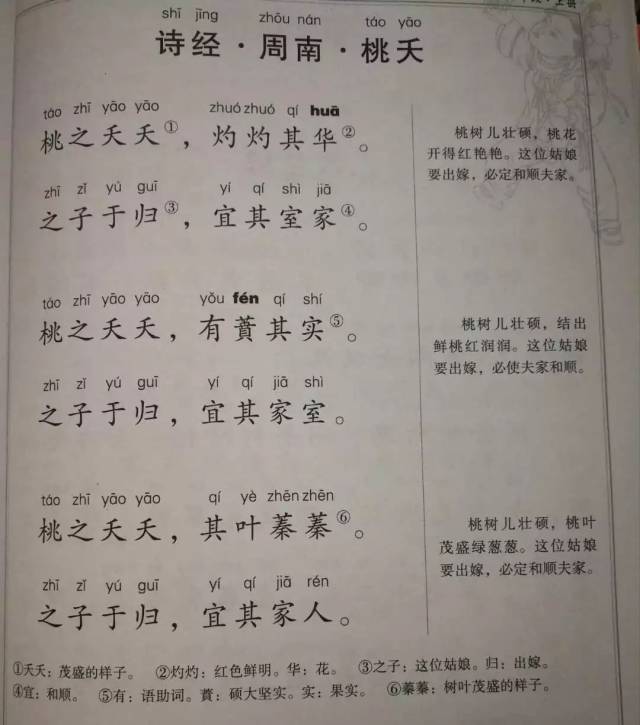 上册
shī jīng zhōu nán táo yāo
诗经·周南·桃夭
táo zhī yāo yāo zhuó zhuó qí huā
桃之夭夭①，灼灼其华②。
zhī zǐ yú guī yí qí shì jiā
之子于归③，宜其室家④。
桃树儿壮硕，桃花
开得红艳艳。这位姑娘
要出嫁，必定和顺夫家。
táo zhī yāo yāo yǒu fén qí shí
桃之夭夭，有蕡其实⑤。
zhī zǐ yú guī yí qí jiā shì
之子于归，宜其家室。
桃树儿壮硕，结出
鲜桃红润润。这位姑娘
要出嫁，必使夫家和顺。
táo zhī yāo yāo qí yè zhēn zhēn
桃之夭夭，其叶蓁蓁⑥。
zhī zǐ yú guī yí qí jiā rén
之子于归，宜其家人。
桃树儿壮硕，桃叶
茂盛绿葱葱。这位姑娘
要出嫁，必定和顺夫家。
①夭夭：茂盛的样子。 ②灼灼：红色鲜明。华：花。 ③之子：这位姑娘。归：出嫁。
④宜：和顺。 ⑤有：语助词。蕡：硕大坚实。实：果实。 ⑥蓁蓁：树叶茂盛的样子。